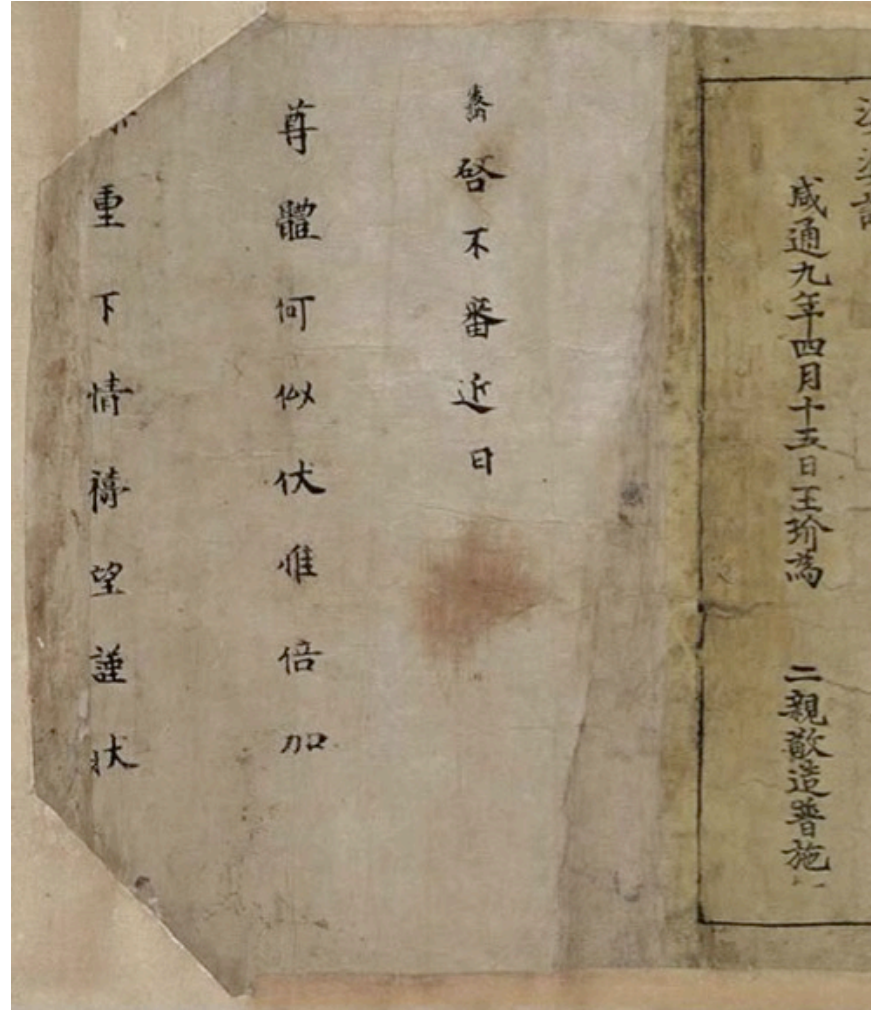 咸通九年四月十五日王玠為 二親敬造普施
啓不番近日
尊體何似伏惟倍加
重下情禱望謹狀